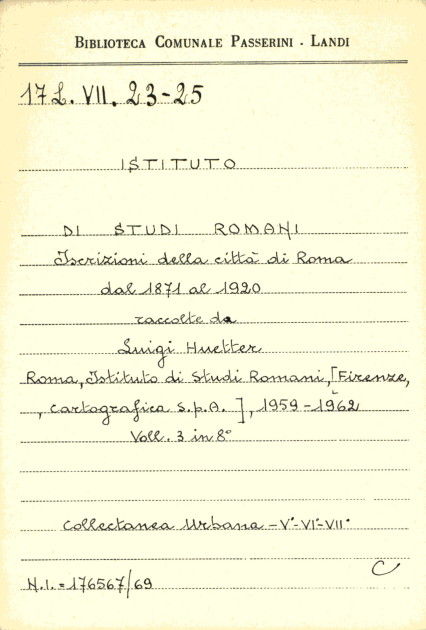 BIBLIOTECA COMUNALE PASSERINI - LANDI
17 L. VII. 23-25
ISTITUTO
DI STUDI ROMANI
Iscrizioni della città di Roma
dal 1871 al 1920
raccolte da
Luigi Huetter
Roma, Istituto di Studi Romani, [Firenze,
, Cartografica S.p.A. ], 1959-1962
Voll. 3 in 8°
Collectanea Urbana - V°-VI°-VII°
N.I. = 176567/69
C